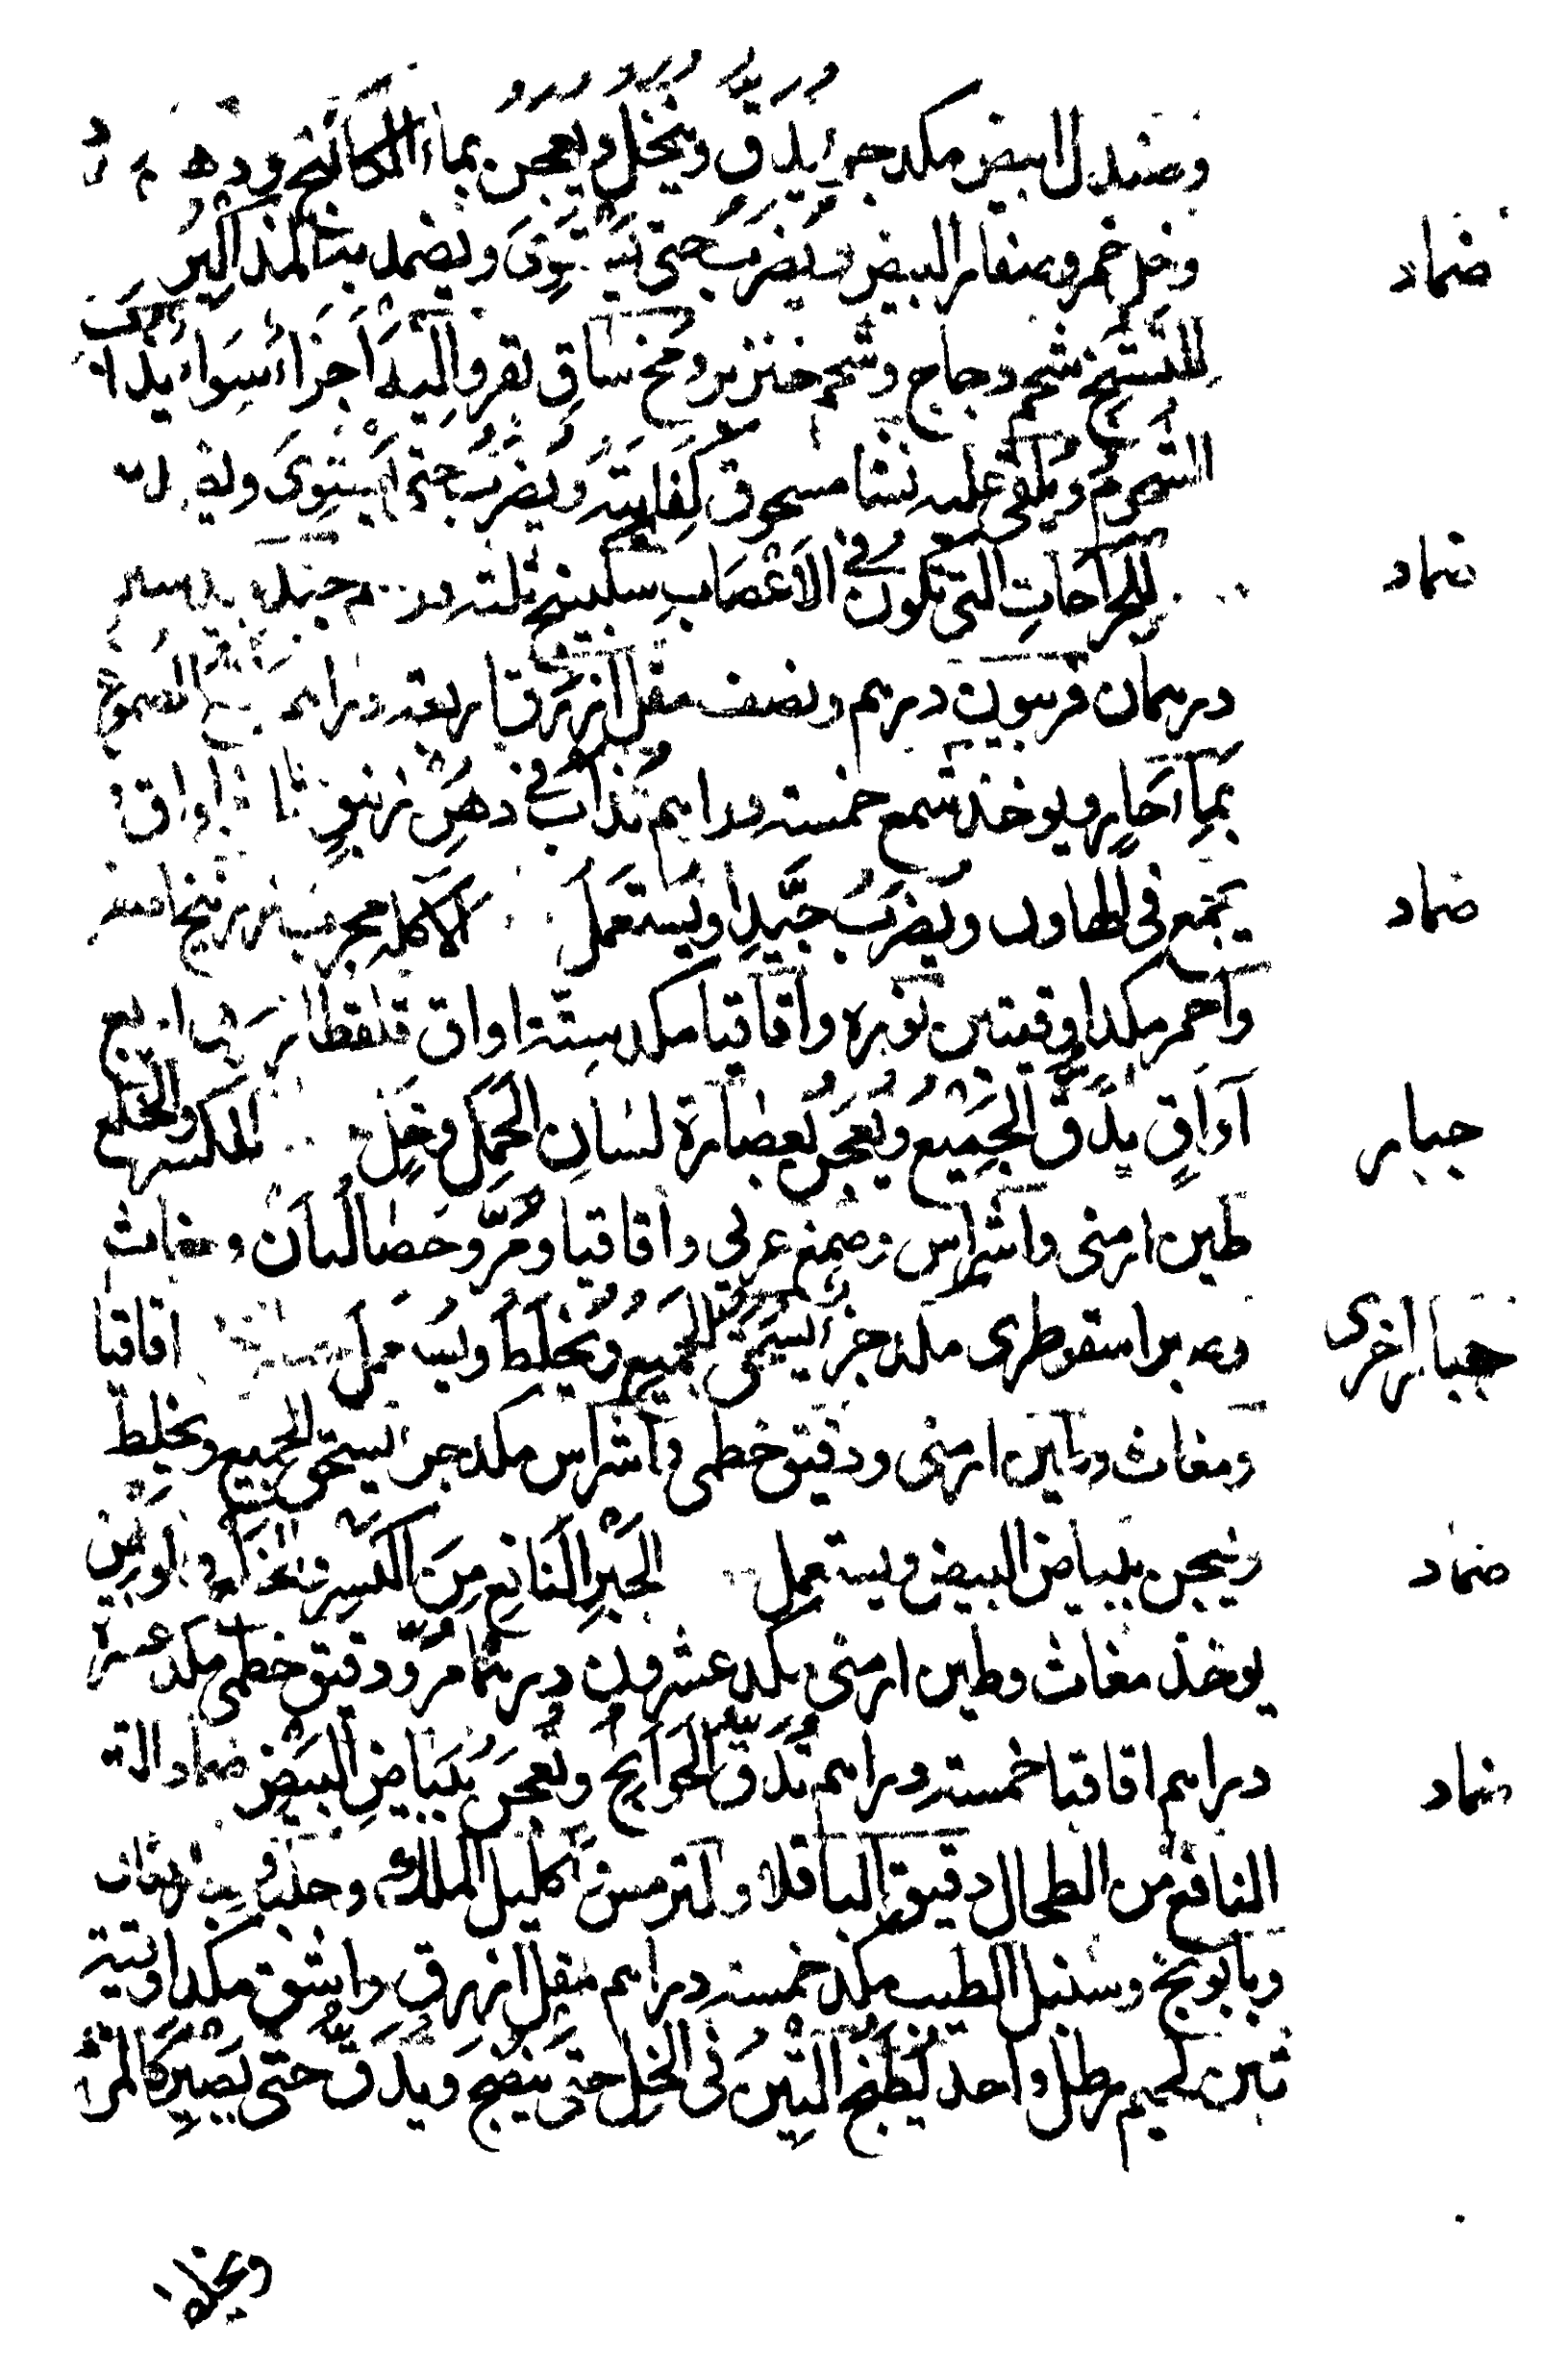 وصندل ابيض مكد جزء يُدَقّ وينخل ويعجن بماء الكاكنج ودهن
ضماد
وخل خمر وصفار البيض ويُضرَبُ حتى يَستَوِىَ ويضمد به المذاكير
للتشنج شحم دجاج وشحم خنزير ومخ ساقِ بقر والِيَه اَجزاء سِوَاء يذاب
الشحوم ويُلقى عليه نشا مسحوق كِفايته ويُضرَب حتى يَستوِىَ
ضماد
للجراحاتِ التى تكون فى الاَعْصَابِ سكبينج ثلثه دراهم جندبيدستر
درهمان فربيون درهم ونصف مقل ازرق اربعه دراهم الصموغ
بماء حارٍ ويوخذ شمع خمسه دراهم يُذابُ فى دهن زنبقٍ اواق
ضماد
يجمع فى الهاون ويُضرَبُ جَيّدا ويُستَعمَلُ للاكله مجرب زرنيخ اصفر
واَحمر مكد اوقيتين نوره واقاقيا مكد ستة اواق قلقطار اربع
جبار
آواقٍ يُدَقّ الجَمِيعُ ويُعجَنُ بعصارة لسَانِ الحَمَل وخلٍ للكسر والخلع
طين ارمنى واشراس وصمغ عربى واقاقيا ومُرّ وحصالبان ومغاث
جبار اخرى
وصبر اسقوطرى مكد جزء يُسحق الجَمِيعُ ويُخلَط ويُستعملُ اقاقيا
ومغاث وطين ارمنى ودقيق خطمى واشراس مكد جزء يسحق الجميع ويخلط
ضماد
ويعجن ببياض البيض ويستعمل الجَبْرِ النَافِعِ مِنَ الكَسر والخلع والوَثْىِ
يوخذ مغاث وطين ارمنى مكد عشرون درهما مُرّ ودقيق خطمى مكد عشرة
ضماد
دراهم اقاقيا خمسه دراهم تُدَقّ الحَوَايج وتُعجَنُ ببَيَاضِ البَيْضِ ضماد
النافع من الطحال دقيق الباقلا والترمس واكليل الملك وحلبه
وبابونج وسنبل الطيب مكد خمسه دراهم مقل ازرق واشق مكد اوقية
تين لحيم رطل واحد يُطبَخُ التِّينُ فى الخل حتى ينضج ويُدَقّ حتى يَصِيرَ كالمرهم